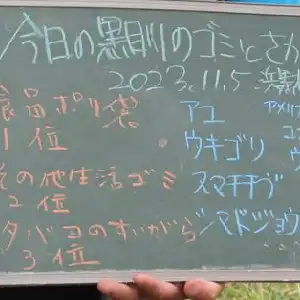 今日の黒目川のゴミとさか
2023.11.5
食品ポリ袋
1位
その他生活ゴミ
2位
タバコのすいがら
3位
アユ
ウキゴリ
スマチチブ
シマドジョウ
アメリ